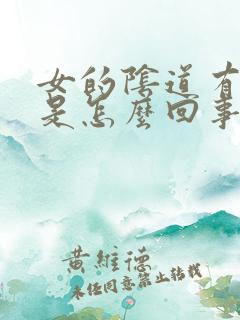 女的陰道有
是怎麼回事
黃維德
未经同意禁止转载